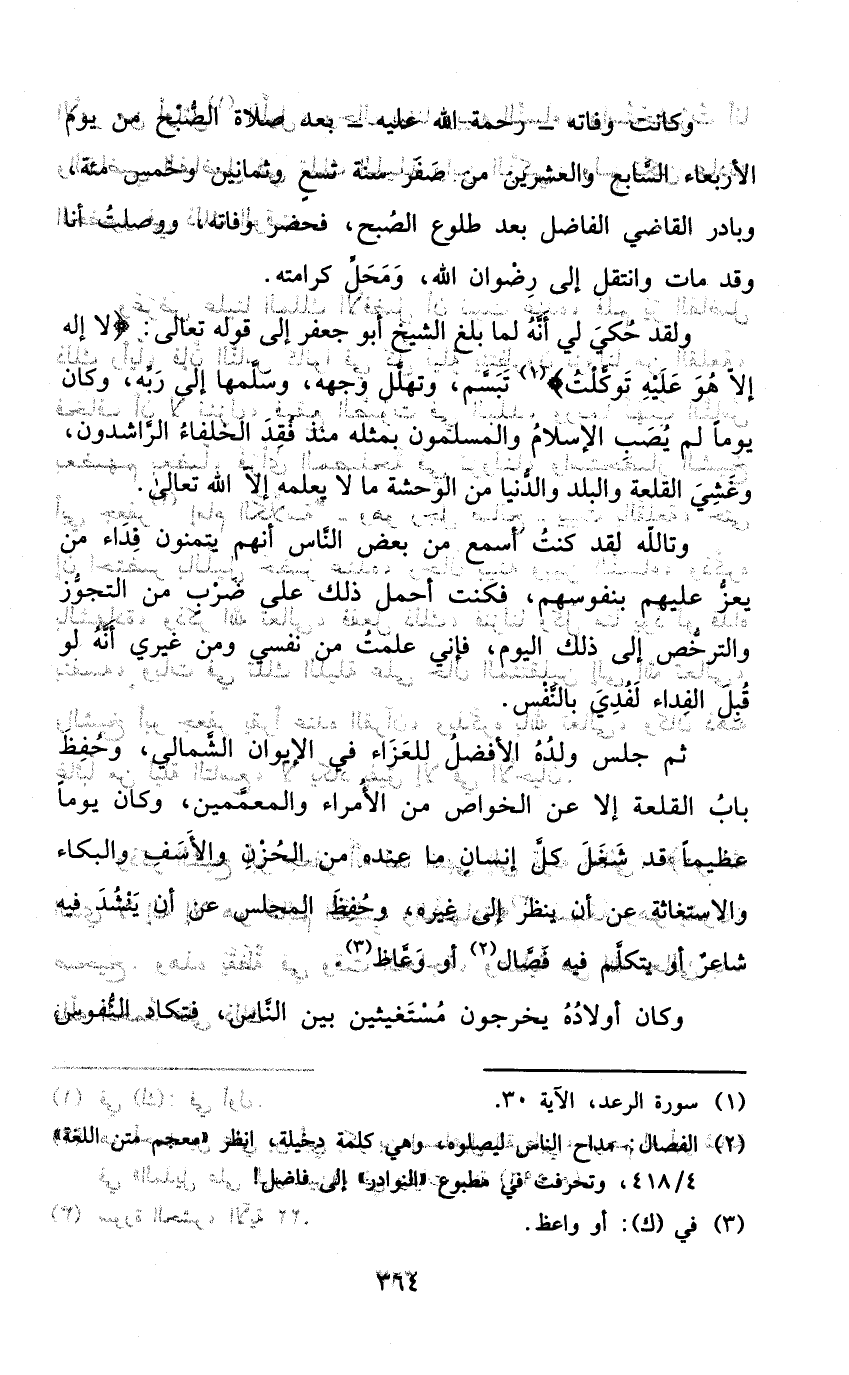 وكانت وفاته ــ رحمة الله عليه ــ بعد صلاة الصُّبْح من يوم
الأربعاء السَّابع والعشرين من صَفَر سنة تسعٍ وثمانين وخمس مئة،
وبادر القاضي الفاضل بعد طلوع الصُبح، فحضر وفاته، ووصلتُ أنا
وقد مات وانتقل إلى رِضْوان الله، وَمَحَلِّ كرامته.
ولقد حُكيَ لي أَنَّهُ لما بلغ الشيخ أبو جعفر إلى قوله تعالى: ﴿لا إله
إلاّ هُوَ عَلَيْهِ تَوكَّلْتُ﴾(١) تَبَسَّم، وتهلَّل وجهه، وسَلَّمها إلى رَبِّه، وكان
يوماً لم يُصَبِ الإسلامُ والمسلمون بمثله منذ فُقِدَ الخلفاءُ الرَّاشدون،
وغَشِيَ القلعة والبلد والدُّنيا من الوحشة ما لا يعلمه إلاّ الله تعالىٰ.
وتاللّه لقد كنتُ أسمع من بعض النَّاس أنهم يتمنون فِدَاء من
يعزُّ عليهم بنفوسهم، فكنت أحمل ذلك على ضَرْبٍ من التجوُّز
والترخُّص إلى ذلك اليوم، فإني علمتُ من نفسي ومن غيري أَنَّهُ لو
قُبِلَ الفِداء لَفُدِيَ بالنَّفْس.
ثم جلس ولدُهُ الأفضلُ للعَزَاء في الإيوان الشَّمالي، وحُفِظَ
بابُ القلعة إلا عن الخواص من الأُمراء والمعمَّمين، وكان يوماً
عظيماً قد شَغَلَ كلَّ إنسانٍ ما عنده من الحُزْنِ والأَسَفِ والبكاء
والاستغاثة عن أن ينظر إلى غيره، وحُفِظَ المجلس عن أن يَنْشُدَ فيه
شاعرٌ أو يتكلَّم فيه فَصَّال(٢) أو وَعَّاظ(٣).
وكان أولادُهُ يخرجون مُسْتَغيثين بين النَّاس، فتكاد النُّفوس
(١) سورة الرعد، الآية ٣٠.
(٢) الفصال: مداح الناس ليصلوه، وهي كلمة دخيلة، انظر «معجم متن اللغة»
٤١٨/٤، وتحرفت في مطبوع «النوادر» إلى فاضل!
(٣) في (ك): أو واعظ.
٣٦٤